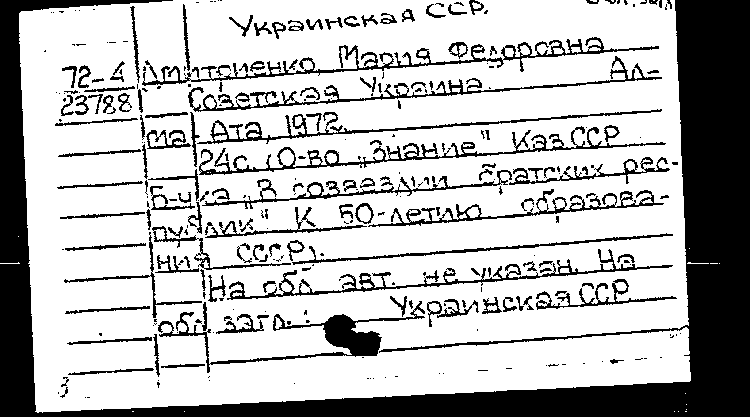 Украинская ССР.
72-4 Дмитриенко, Мария Федоровна.
23788 Советская Украина. Ал-
ма-Ата, 1972.
24с. (О-во „Знание" Каз.ССР
Б-чка „В созвездии братских рес-
публик" К 50-летию образова-
ния СССР).
На обл. авт. не указан. На
обл. загл.: Украинская ССР